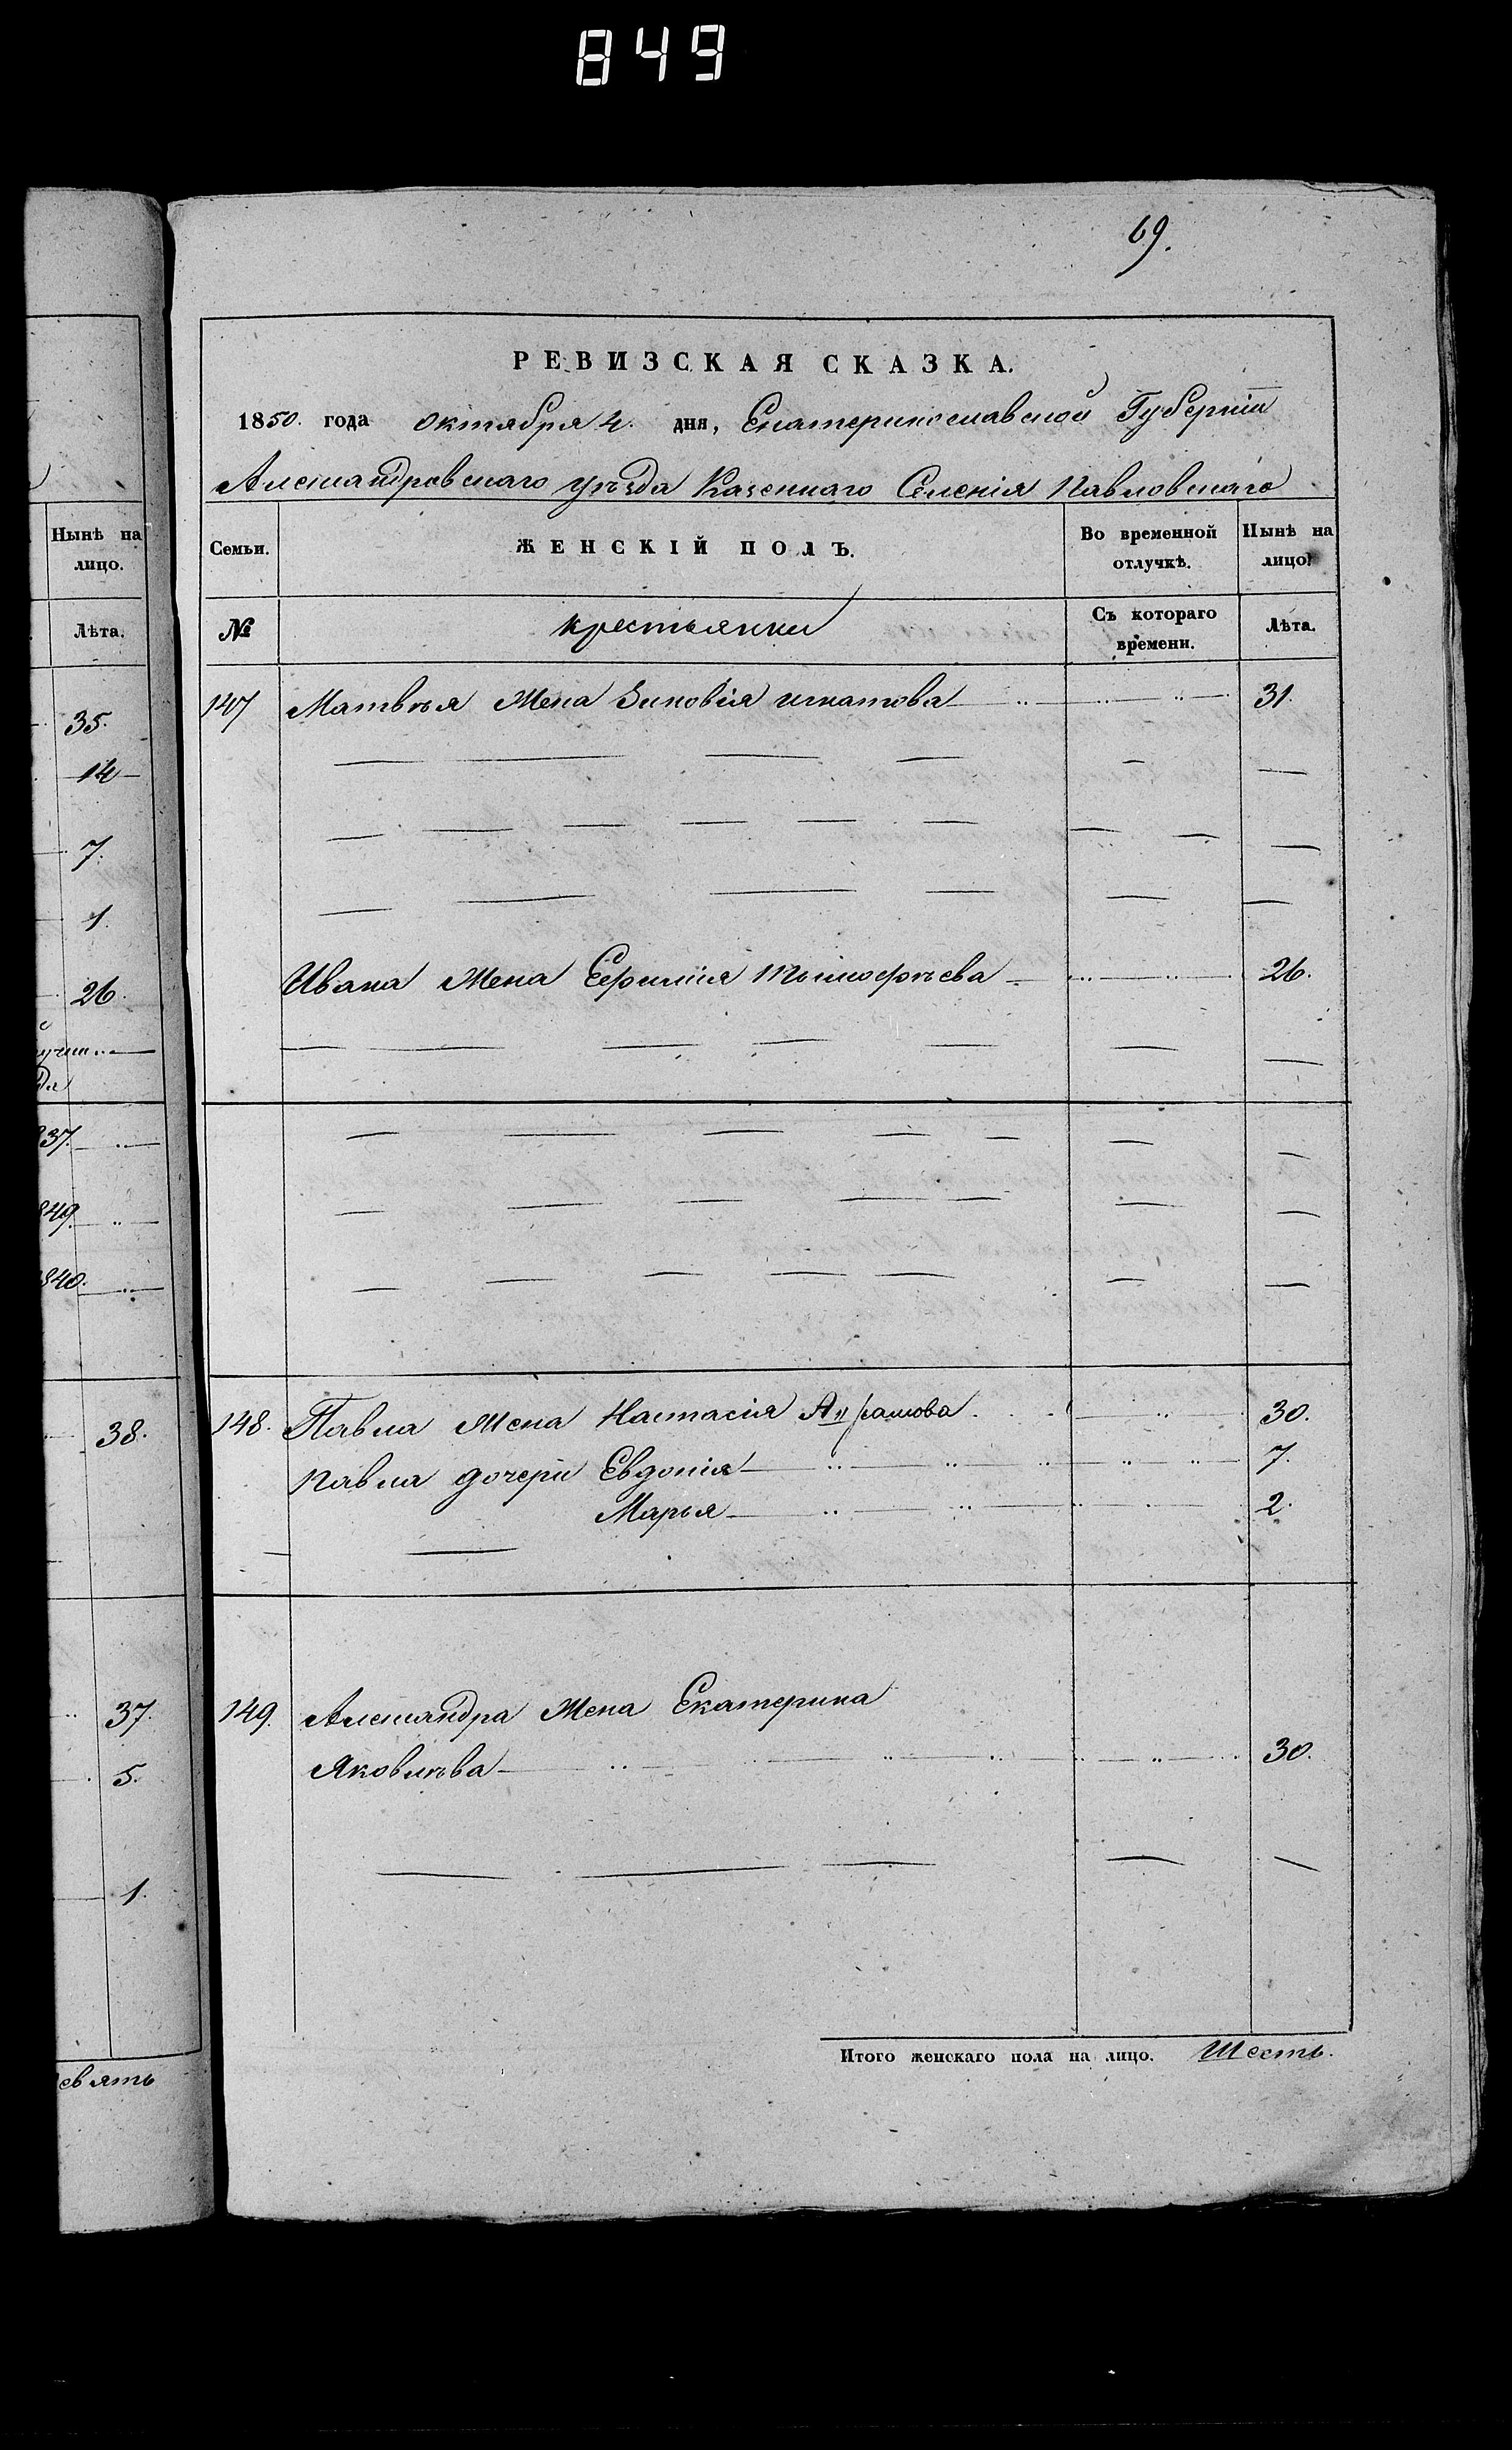 849
69.
РЕВИЗСКАЯ СКАЗКА.
1850. года октября 4. дня, Екатеринославской Губерніи
Александровскаго уѣзда Казеннаго Селенія Павловскаго
Нынѣ на лицо.
Лѣта.
35.
14
7.
1.
26.
37.
849.
840.
38.
37.
5.
1.
евять
Семьи. ЖЕНСКІЙ ПОЛЪ. Во временной отлучкѣ. Нынѣ на лицо.
№ крестьянки Съ котораго времени. Лѣта.
147 Матвѣя Жена Зиновія Игнатова 31.
Ивана Жена Ефимія Тимофѣева 26.
148. Павла Жена Настасія 30.
Павла дочери Евдокія 7.
Марья 2.
149. Александра Жена Екатерина
Яковлѣва 30.
Итого женскаго пола на лицо. Шесть.